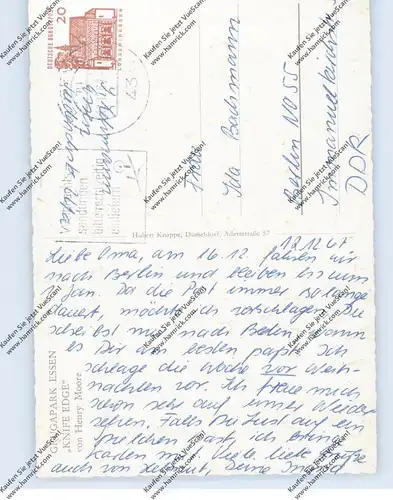 DEUTSCHE BUNDESPOST
20
LORSCH/HESSEN
43
Frau
Ida Bachmann
Berlin NO 55
Immanuelkirchstr.
DDR
Hubert Knappe, Düsseldorf, Adersstraße 57
GRUGAPARK ESSEN
„KNIFE EDGE"
von Henry Moore
12.12.67
Liebe Oma, am 16.12. fahren wir
nach Berlin und bleiben bis zum
Jan. Da die Post immer so lange
dauert, möcht ich vorschlagen, Du
schreibst mir nach Berlin, wann
es Dir am besten paßt. Ich
schlage die Woche vor Weih-
nachten vor. Ich freue mich
schon sehr auf unser Wieder-
sehen. Falls Du Lust auf ein
Spielchen hast, ich bringe
Karten mit. Viele liebe Grüße
auch von, Deine
Kaufen Sie jetzt VueScan!
www.hamrick.com